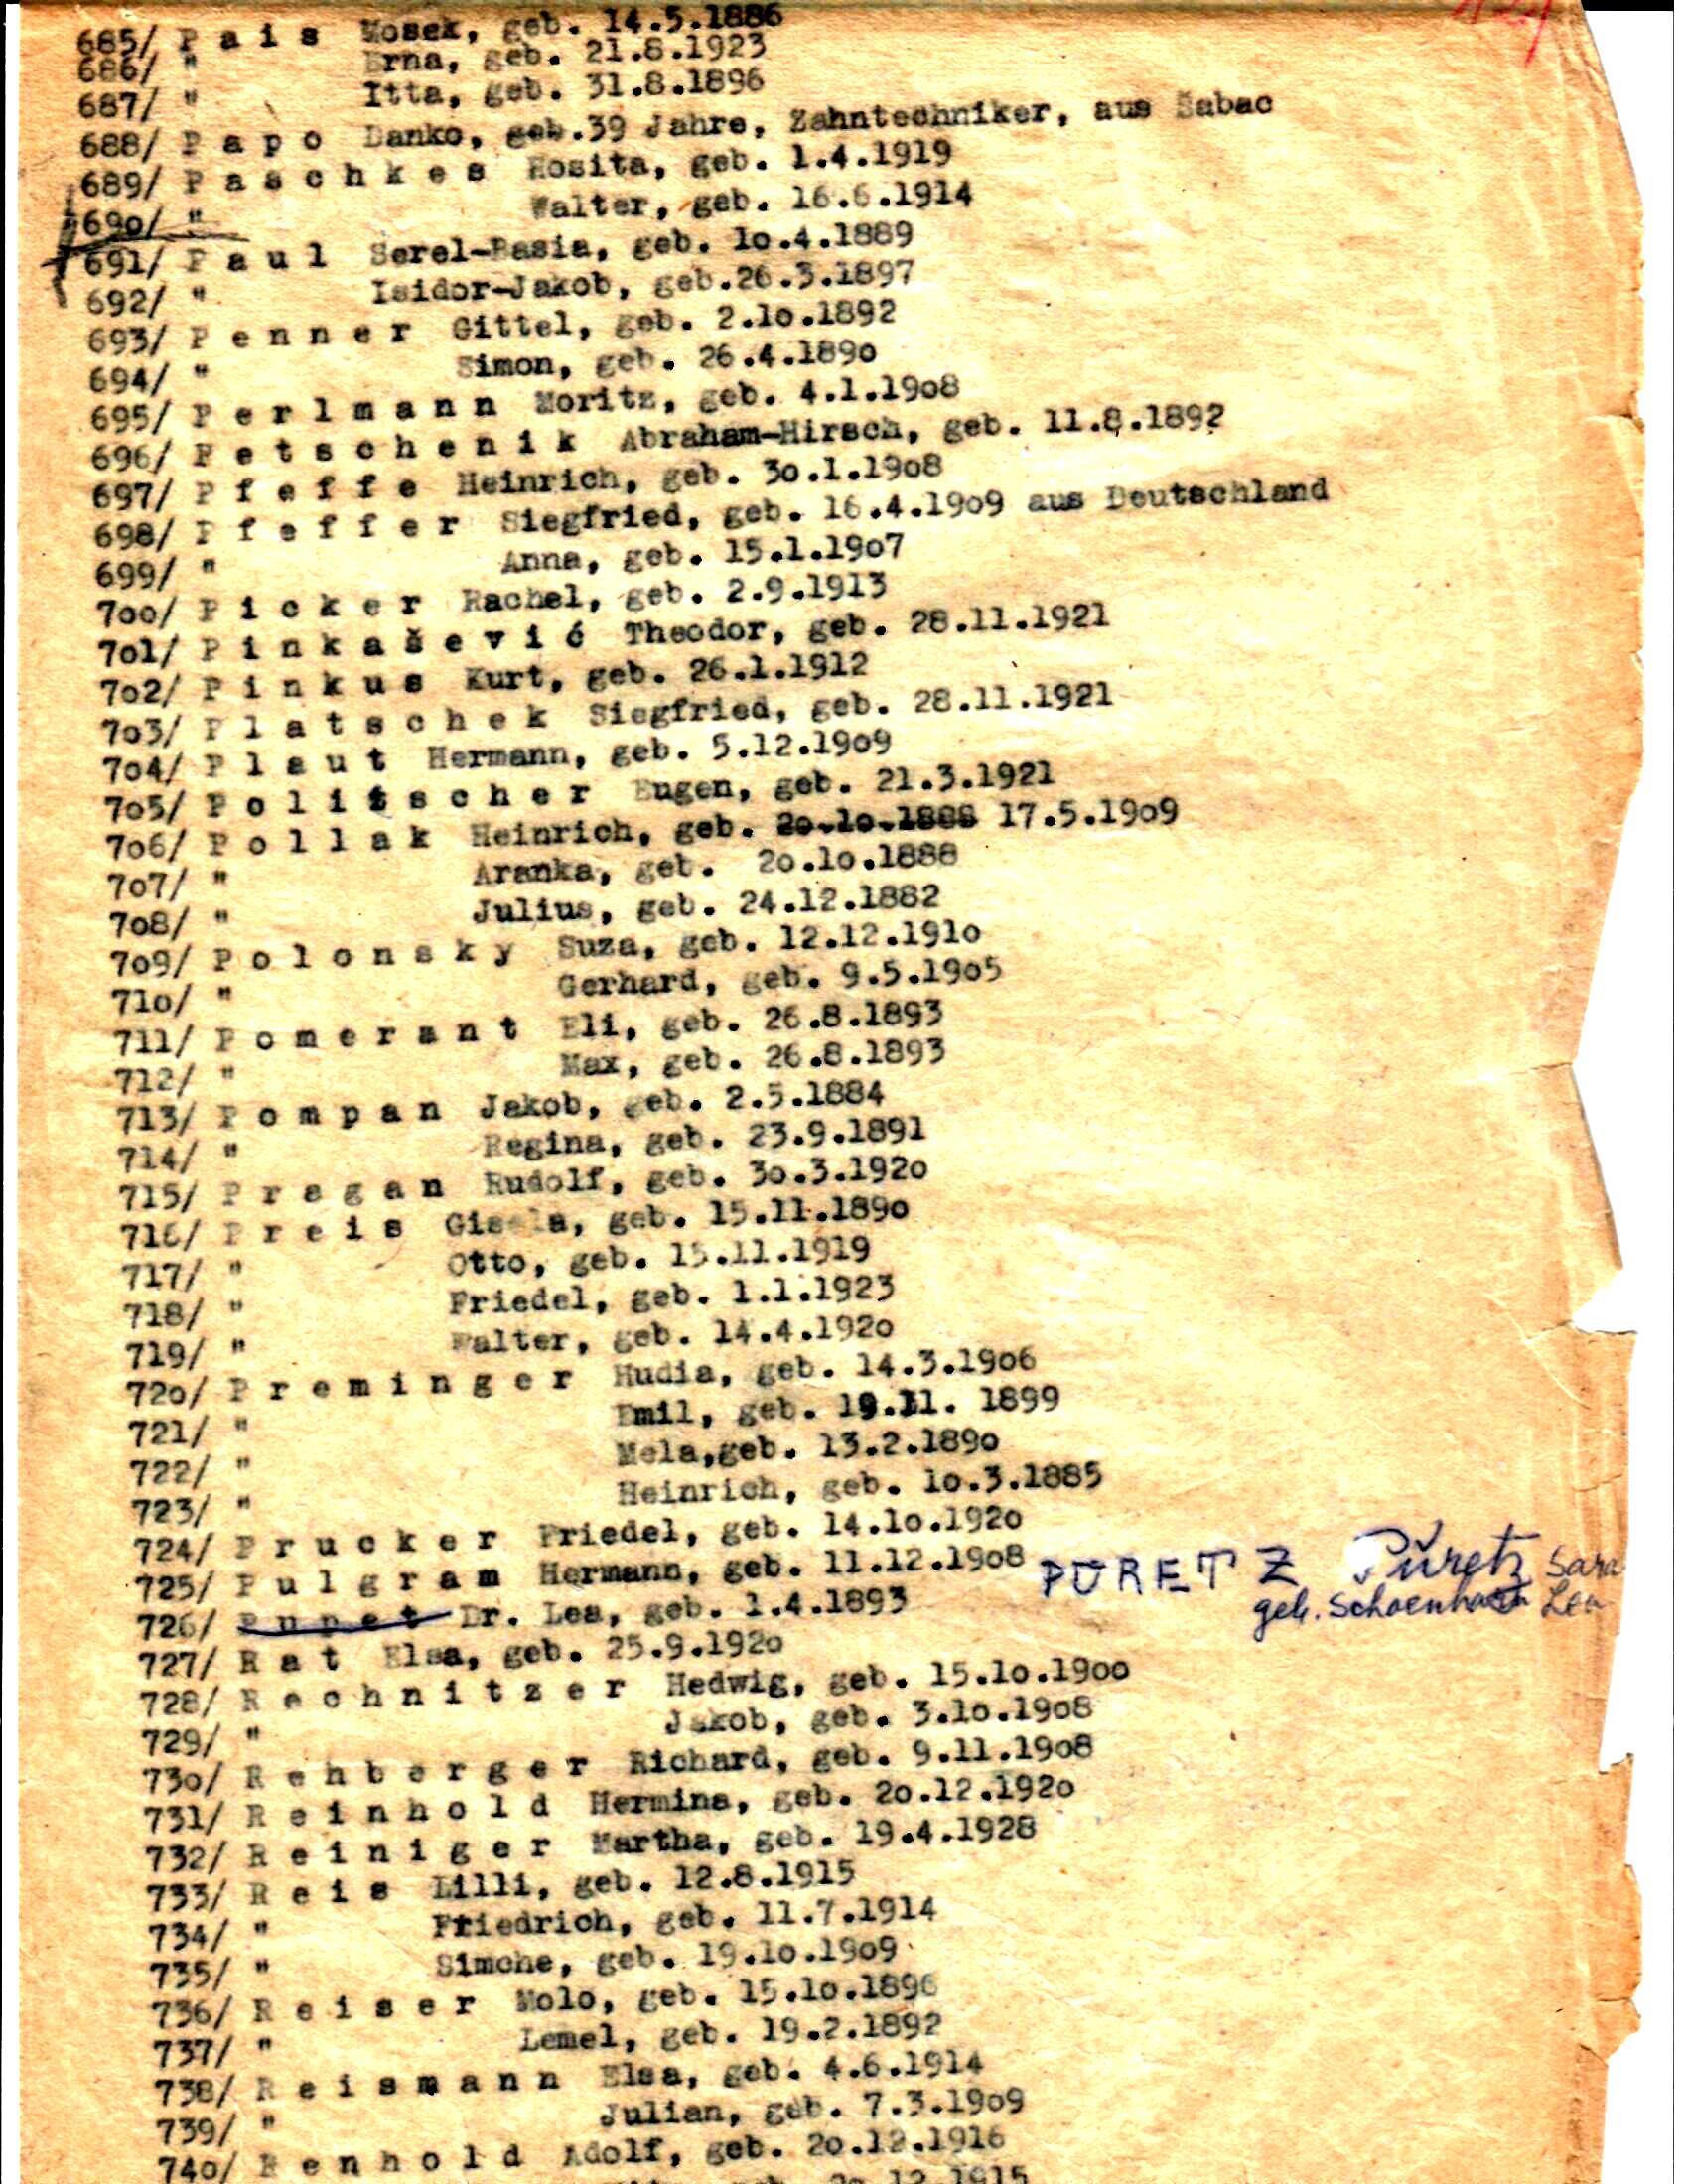 685/ P a i s Mosek, geb. 14.5.1886
686/ " Erna, geb. 21.8.1923
687/ " Itta, geb. 31.8.1896
688/ P a p o Danko, geb.39 Jahre, Zahntechniker, aus Šabac
689/ P a s c h k e s Rosita, geb. 1.4.1919
690/ " Walter, geb. 16.6.1914
691/ P a u l Serel-Basia, geb. 1o.4.1889
692/ " Isidor-Jakob, geb.26.3.1897
693/ P e n n e r Gittel, geb. 2.1o.1892
694/ " Simon, geb. 26.4.189o
695/ P e r l m a n n Moritz, geb. 4.1.19o8
696/ P e t s c h e n i k Abraham-Hirsch, geb. 11.8.1892
697/ P f e f f e Heinrich, geb. 3o.1.19o8
698/ P f e f f e r Siegfried, geb. 16.4.19o9 aus Deutschland
699/ " Anna, geb. 15.1.19o7
7oo/ P i c k e r Rachel, geb. 2.9.1913
7o1/ P i n k a š e v i ć Theodor, geb. 28.11.1921
7o2/ P i n k u s Kurt, geb. 26.1.1912
7o3/ P l a t s c h e k Siegfried, geb. 28.11.1921
7o4/ P l a u t Hermann, geb. 5.12.19o9
7o5/ P o l i t s c h e r Eugen, geb. 21.3.1921
7o6/ P o l l a k Heinrich, geb. 2o.1o.1888 17.5.19o9
7o7/ " Aranka, geb. 2o.1o.1888
7o8/ " Julius, geb. 24.12.1882
7o9/ P o l o n s k y Suza, geb. 12.12.191o
71o/ " Gerhard, geb. 9.5.19o5
711/ P o m e r a n t Eli, geb. 26.8.1893
712/ " Max, geb. 26.8.1893
713/ P o m p a n Jakob, geb. 2.5.1884
714/ " Regina, geb. 23.9.1891
715/ P r a g a n Rudolf, geb. 3o.3.192o
716/ P r e i s Gisela, geb. 15.11.189o
717/ " Otto, geb. 15.11.1919
718/ " Friedel, geb. 1.1.1923
719/ " Walter, geb. 14.4.192o
72o/ P r e m i n g e r Hudia, geb. 14.3.19o6
721/ " Emil, geb. 19.11. 1899
722/ " Mela,geb. 13.2.189o
723/ " Heinrich, geb. 1o.3.1885
724/ P r u c k e r Friedel, geb. 14.1o.192o
725/ P u l g r a m Hermann, geb. 11.12.19o8 PÜRETZ Püretz Sara
726/ P u p e t Dr. Lea, geb. 1.4.1893 geb. Lea
727/ R a t Elsa, geb. 25.9.192o
728/ R e c h n i t z e r Hedwig, geb. 15.1o.19oo
729/ " Jakob, geb. 3.1o.19o8
73o/ R e h b e r g e r Richard, geb. 9.11.19o8
731/ R e i n h o l d Hermina, geb. 2o.12.192o
732/ R e i n i g e r Martha, geb. 19.4.1928
733/ R e i s Lilli, geb. 12.8.1915
734/ " Friedrich, geb. 11.7.1914
735/ " Simche, geb. 19.1o.19o9
736/ R e i s e r Molo, geb. 15.1o.1896
737/ " Lemel, geb. 19.2.1892
738/ R e i s m a n n Elsa, geb. 4.6.1914
739/ " Julian, geb. 7.3.19o9
74o/ R e n h o l d Adolf, geb. 2o.12.1916